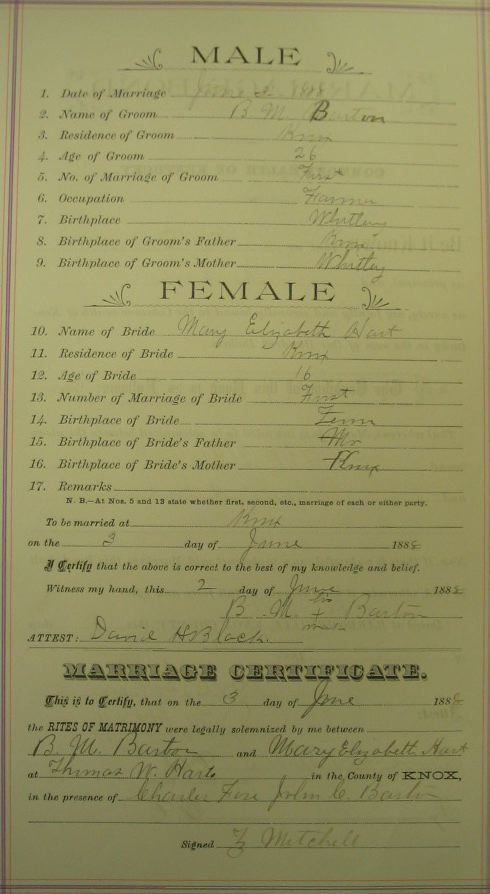 MALE
1. Date of Marriage June 2 1888
2. Name of Groom B. M. Barton
3. Residence of Groom Knox
4. Age of Groom 26
5. No. of Marriage of Groom First
6. Occupation Farmer
7. Birthplace Whitley
8. Birthplace of Groom's Father Knox
9. Birthplace of Groom's Mother Whitley
FEMALE
10. Name of Bride Mary Elizabeth Hart
11. Residence of Bride Knox
12. Age of Bride 16
13. Number of Marriage of Bride First
14. Birthplace of Bride Tenn
15. Birthplace of Bride's Father Mo
16. Birthplace of Bride's Mother Knox
17. Remarks
N. B.—At Nos. 5 and 13 state whether first, second, etc., marriage of each or either party.
To be married at Knox
on the 3 day of June 1888
I Certify that the above is correct to the best of my knowledge and belief.
Witness my hand, this 2 day of June 1888
B. M. his x mark Barton
ATTEST: David H Black.
MARRIAGE CERTIFICATE.
This is to Certify, that on the 3 day of June 1888
the RITES OF MATRIMONY were legally solemnized by me between
B. M. Barton and Mary Elizabeth Hart
at Thomas W. Harts in the County of KNOX,
in the presence of Charles John C. Barton
Signed Mitchell